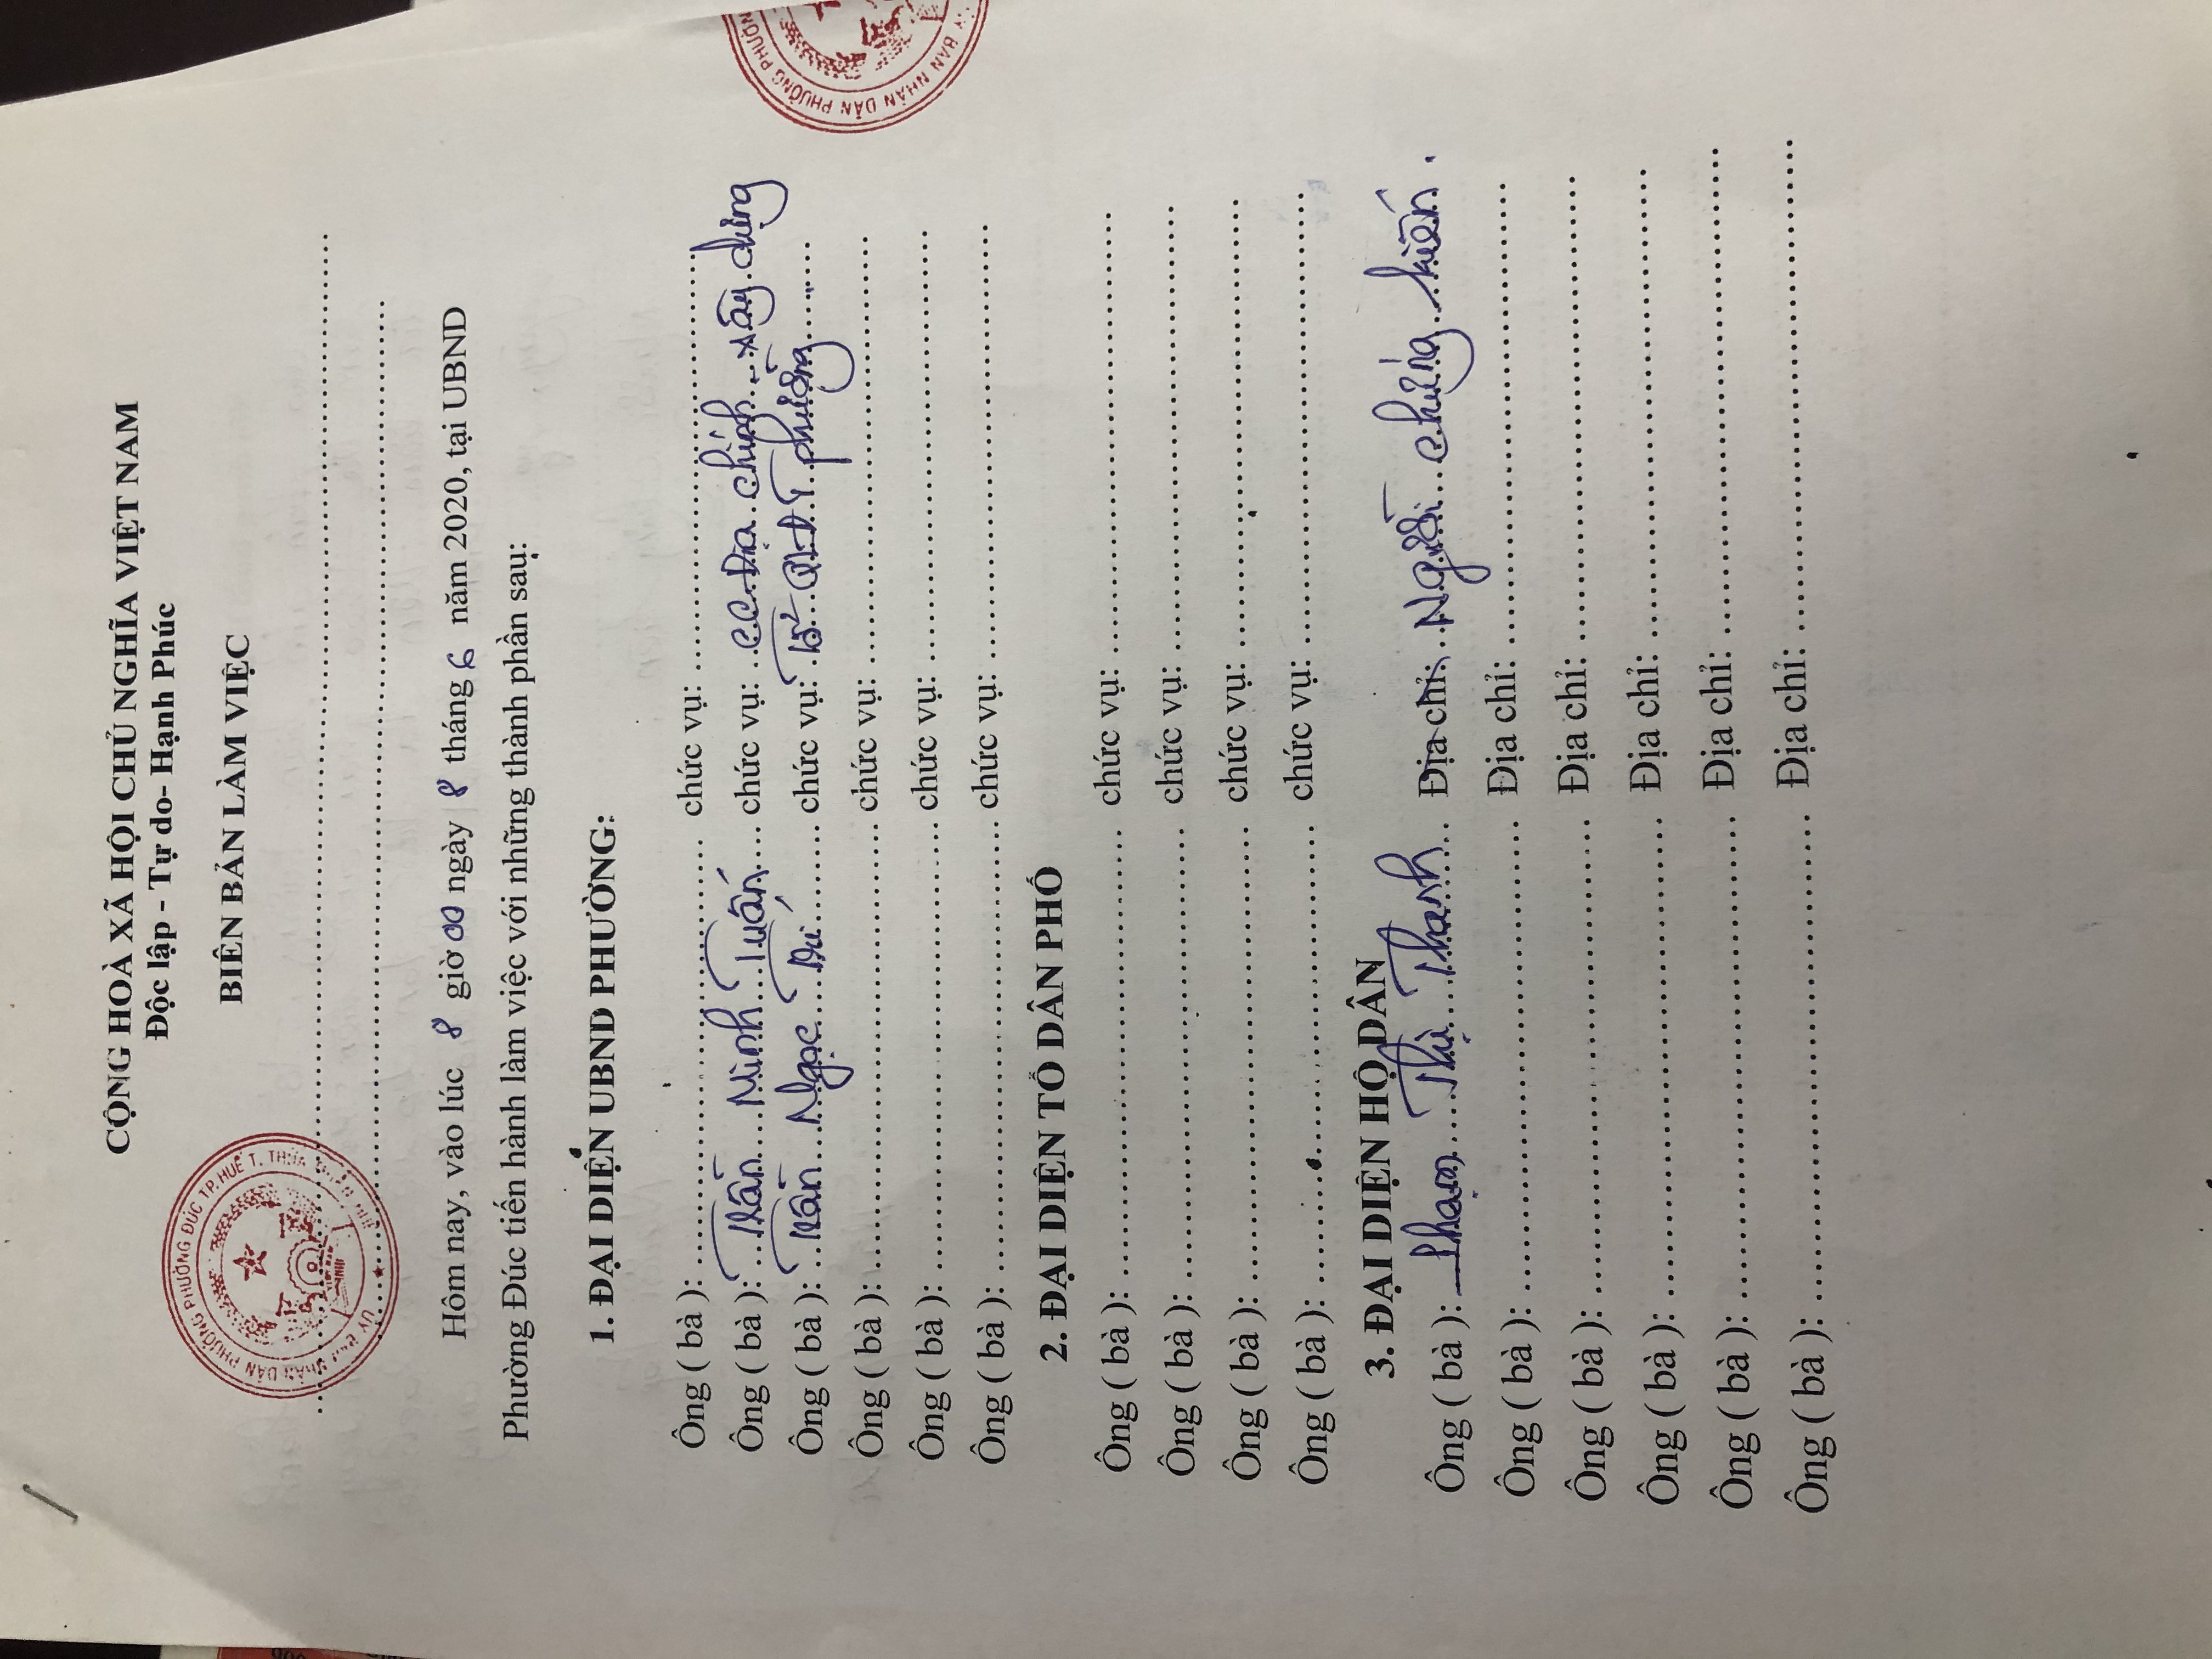 CỘNG HOÀ XÃ HỘI CHỦ NGHĨA VIỆT NAM
Độc lập - Tự do- Hạnh Phúc
BIÊN BẢN LÀM VIỆC
Hôm nay, vào lúc 8 giờ 00 ngày 8 tháng 6 năm 2020, tại UBND
Phường Đúc tiến hành làm việc với những thành phần sau:
1. ĐẠI DIỆN UBND PHƯỜNG:
Ông ( bà ): chức vụ:
Ông ( bà ): Trần Minh Tuấn chức vụ: CC Địa chính - xây dựng
Ông ( bà ): Trần Ngọc Tú chức vụ: Tổ QLĐT phường
Ông ( bà ): chức vụ:
Ông ( bà ): chức vụ:
Ông ( bà ): chức vụ:
2. ĐẠI DIỆN TỔ DÂN PHỐ
Ông ( bà ): chức vụ:
Ông ( bà ): chức vụ:
Ông ( bà ): chức vụ:
Ông ( bà ): chức vụ:
3. ĐẠI DIỆN HỘ DÂN
Ông ( bà ): Phạm Thị Thanh Địa chỉ: Người chứng kiến.
Ông ( bà ): Địa chỉ:
Ông ( bà ): Địa chỉ:
Ông ( bà ): Địa chỉ:
Ông ( bà ): Địa chỉ:
Ông ( bà ): Địa chỉ:
NHÂN DÂN PHƯỜNG ĐÚC TP.HUẾ T. THỪA
BAN NHÂN DÂN PHƯỜNG